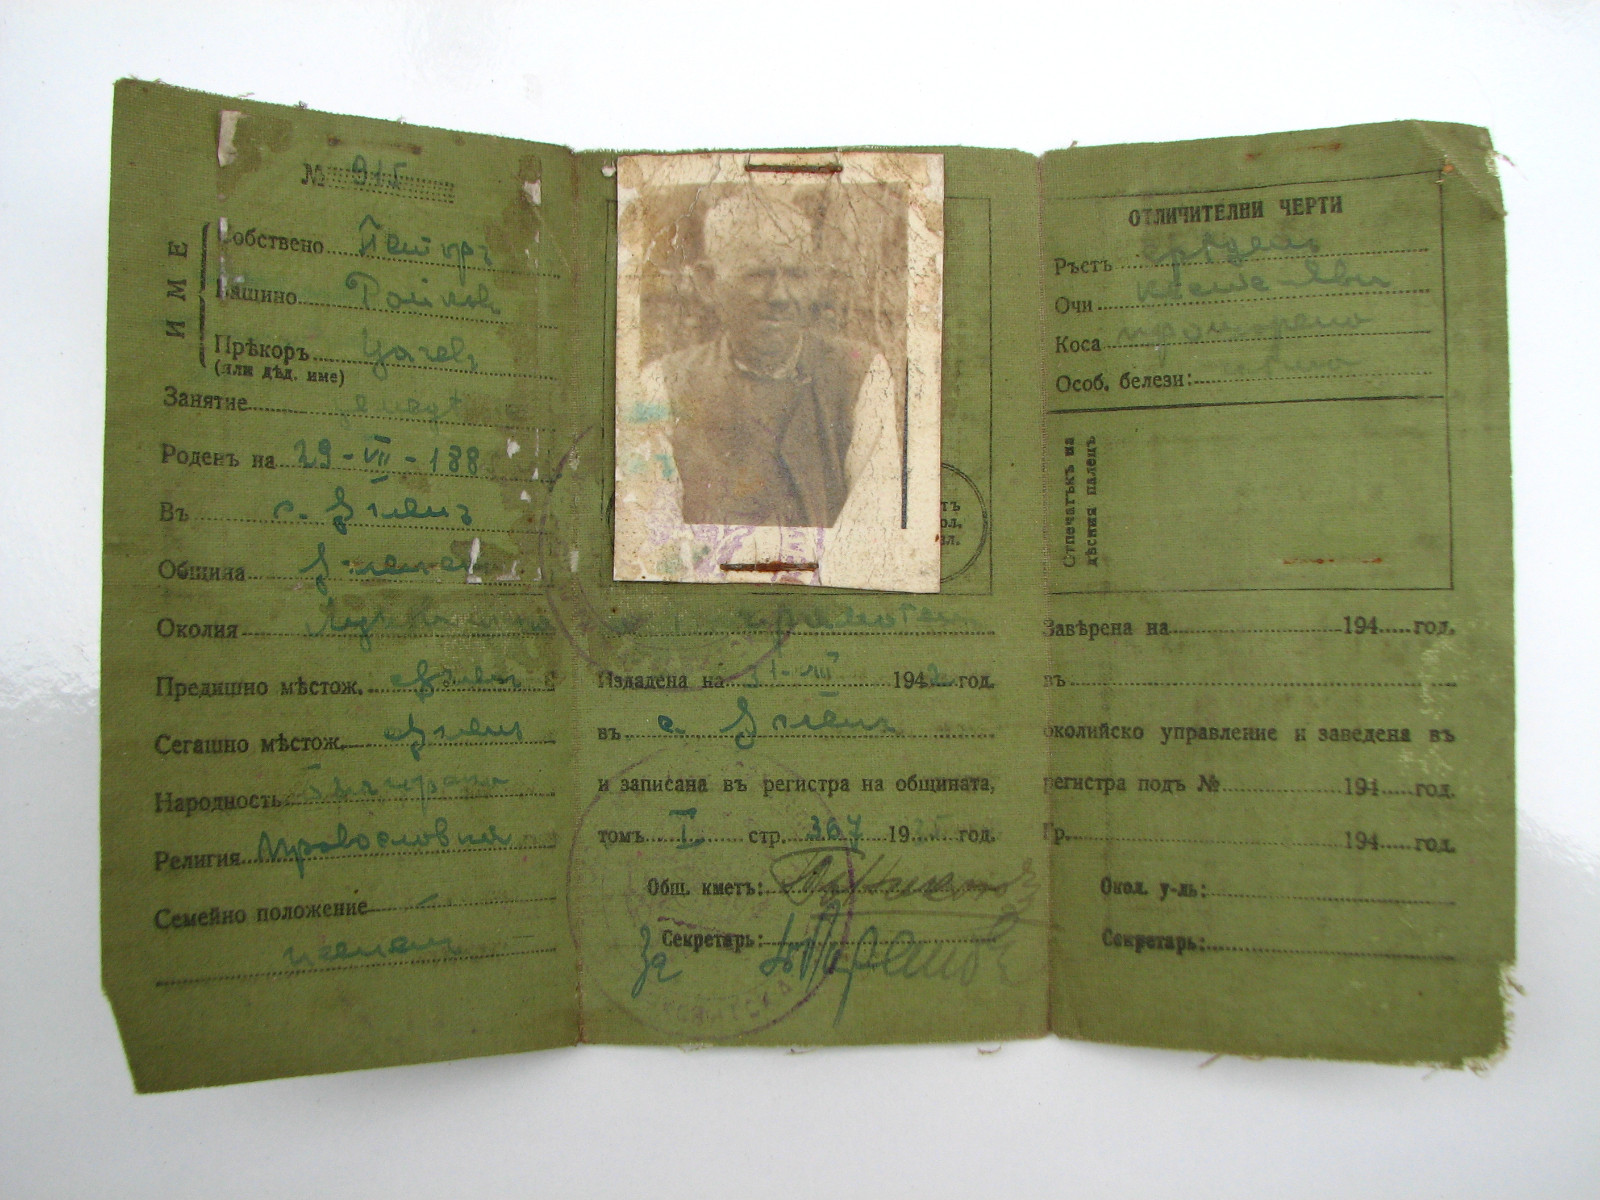 № 915
ИМЕ
Собствено Петъръ
Башино Райковъ
Прѣкоръ Цачевъ
(или дѣд. име)
Занятие
Роденъ на 29-VII-188
Въ с. Ѫгленъ
Община Ѫгленъ
Околия
Предишно мѣстож. с Ѫгленъ
Сегашно мѣстож. с Ѫгленъ
Народность българска
Религия Православна
Семейно положение
женен
Издадена на 31-VIII 194 год.
въ с. Ѫгленъ
и записана въ регистра на общината,
томъ I стр. 367 19 год.
Общ. кметъ:
за Секретарь:
ОТЛИЧИТЕЛНИ ЧЕРТИ
Ръстъ срѣденъ
Очи кестеняви
Коса прошарена
Особ. белези:
Отпечатъкъ на
дѣсния палецъ
Завѣрена на 194 год.
въ
околийско управление и заведена въ
регистра подъ № 194 год.
Гр. 194 год.
Окол. у-ль:
Секретарь: